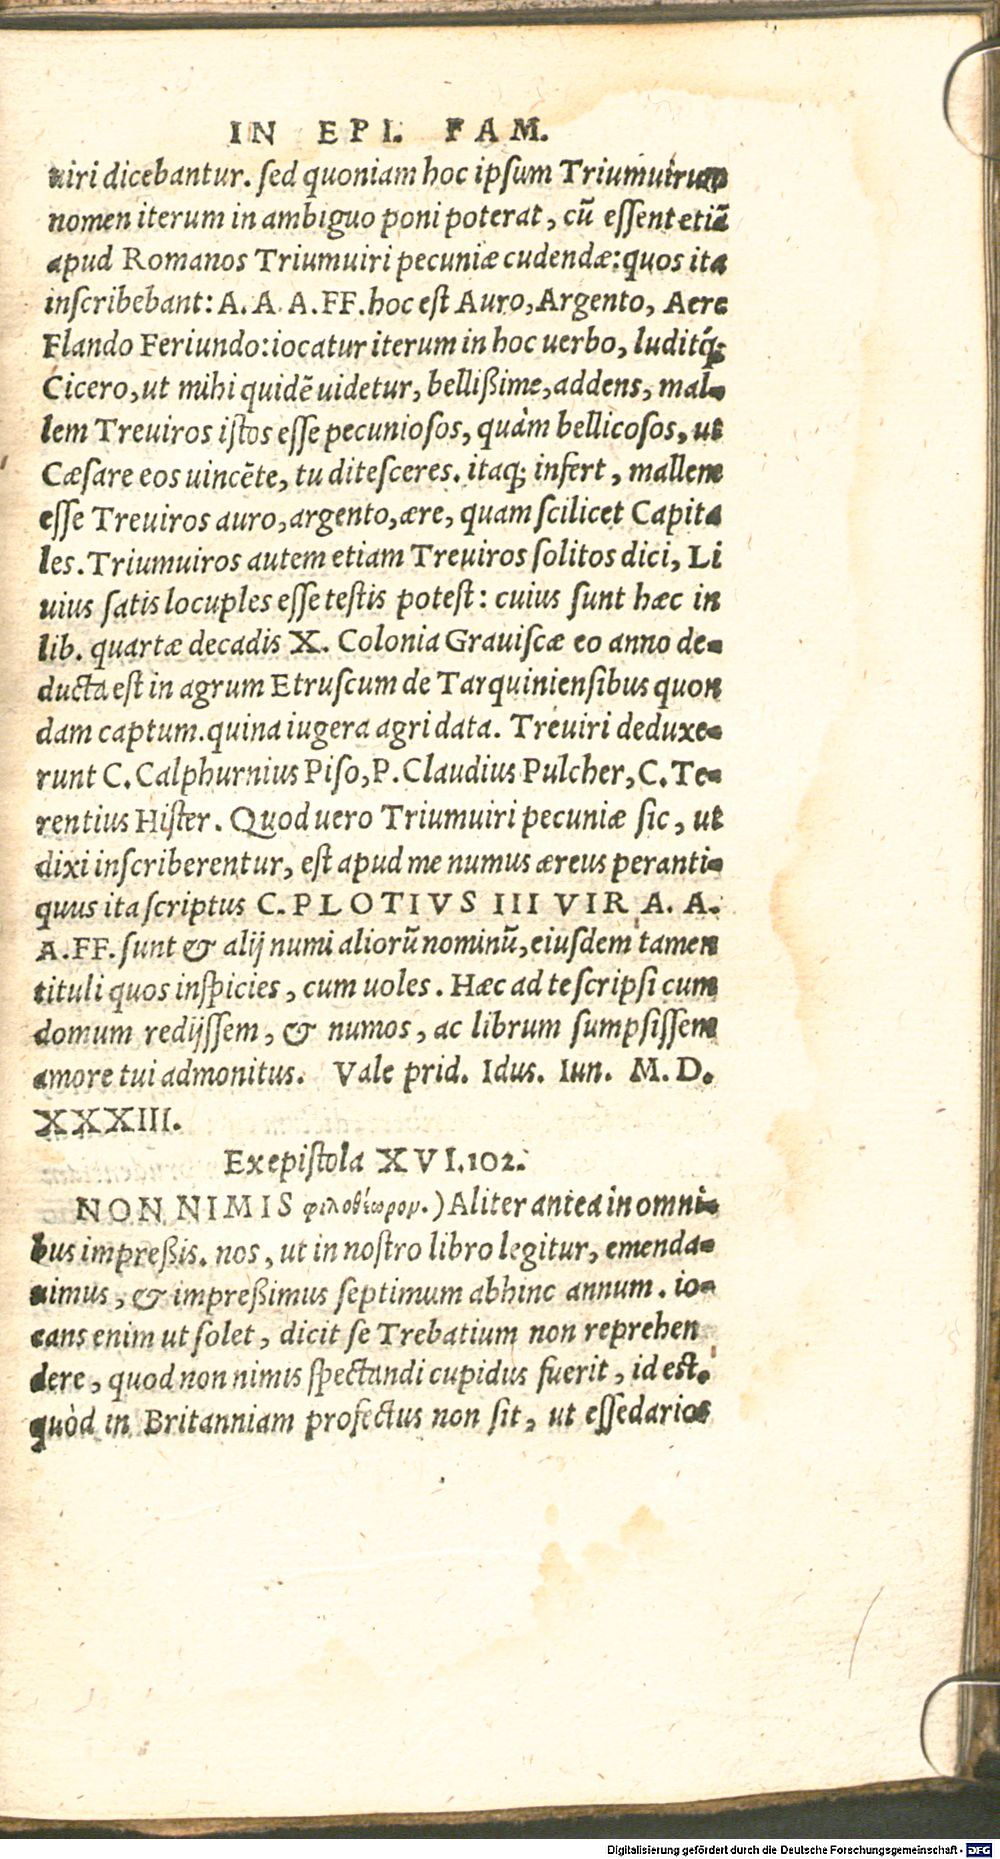 IN EPI. FAM.
uiri dicebantur. sed quoniam hoc ipsum Triumuirum
nomen iterum in ambiguo poni poterat, cũ essent etiã
apud Romanos Triumuiri pecuniæ cudendæ: quos ita
inscribebant: A. A. A. FF. hoc est Auro, Argento, Aere
Flando Feriundo: iocatur iterum in hoc uerbo, luditq́;
Cicero, ut mihi quidẽ uidetur, bellißime, addens, mal-
lem Treuiros istos esse pecuniosos, quàm bellicosos, ut
Cæsare eos uincẽte, tu ditesceres. itaq; infert, mallem
esse Treuiros auro, argento, ære, quam scilicet Capita
les. Triumuiros autem etiam Treuiros solitos dici, Li
uius satis locuples esse testis potest: cuius sunt hæc in
lib. quartæ decadis X. Colonia Grauiscæ eo anno de-
ducta est in agrum Etruscum de Tarquiniensibus quon
dam captum. quina iugera agri data. Treuiri deduxe-
runt C. Calphurnius Piso, P. Claudius Pulcher, C. Te-
rentius Hister. Quod uero Triumuiri pecuniæ sic, ut
dixi inscriberentur, est apud me numus æreus peranti-
quus ita scriptus C. PLOTIVS III VIR A. A.
A. FF. sunt & alij numi aliorũ nominũ, eiusdem tamen
tituli quos inspicies, cum uoles. Hæc ad te scripsi cum
domum redijssem, & numos, ac librum sumpsissem
amore tui admonitus. Vale prid. Idus. Iun. M. D.
XXXIII.
Ex epistola XVI. 102.
NON NIMIS φιλοθέωρον.) Aliter antea in omni-
bus impreßis. nos, ut in nostro libro legitur, emenda-
uimus, & impreßimus septimum abhinc annum. io-
cans enim ut solet, dicit se Trebatium non reprehen
dere, quod non nimis spectandi cupidus fuerit, id est.
quòd in Britanniam profectus non sit, ut essedarios
Digitalisierung gefördert durch die Deutsche Forschungsgemeinschaft - DFG